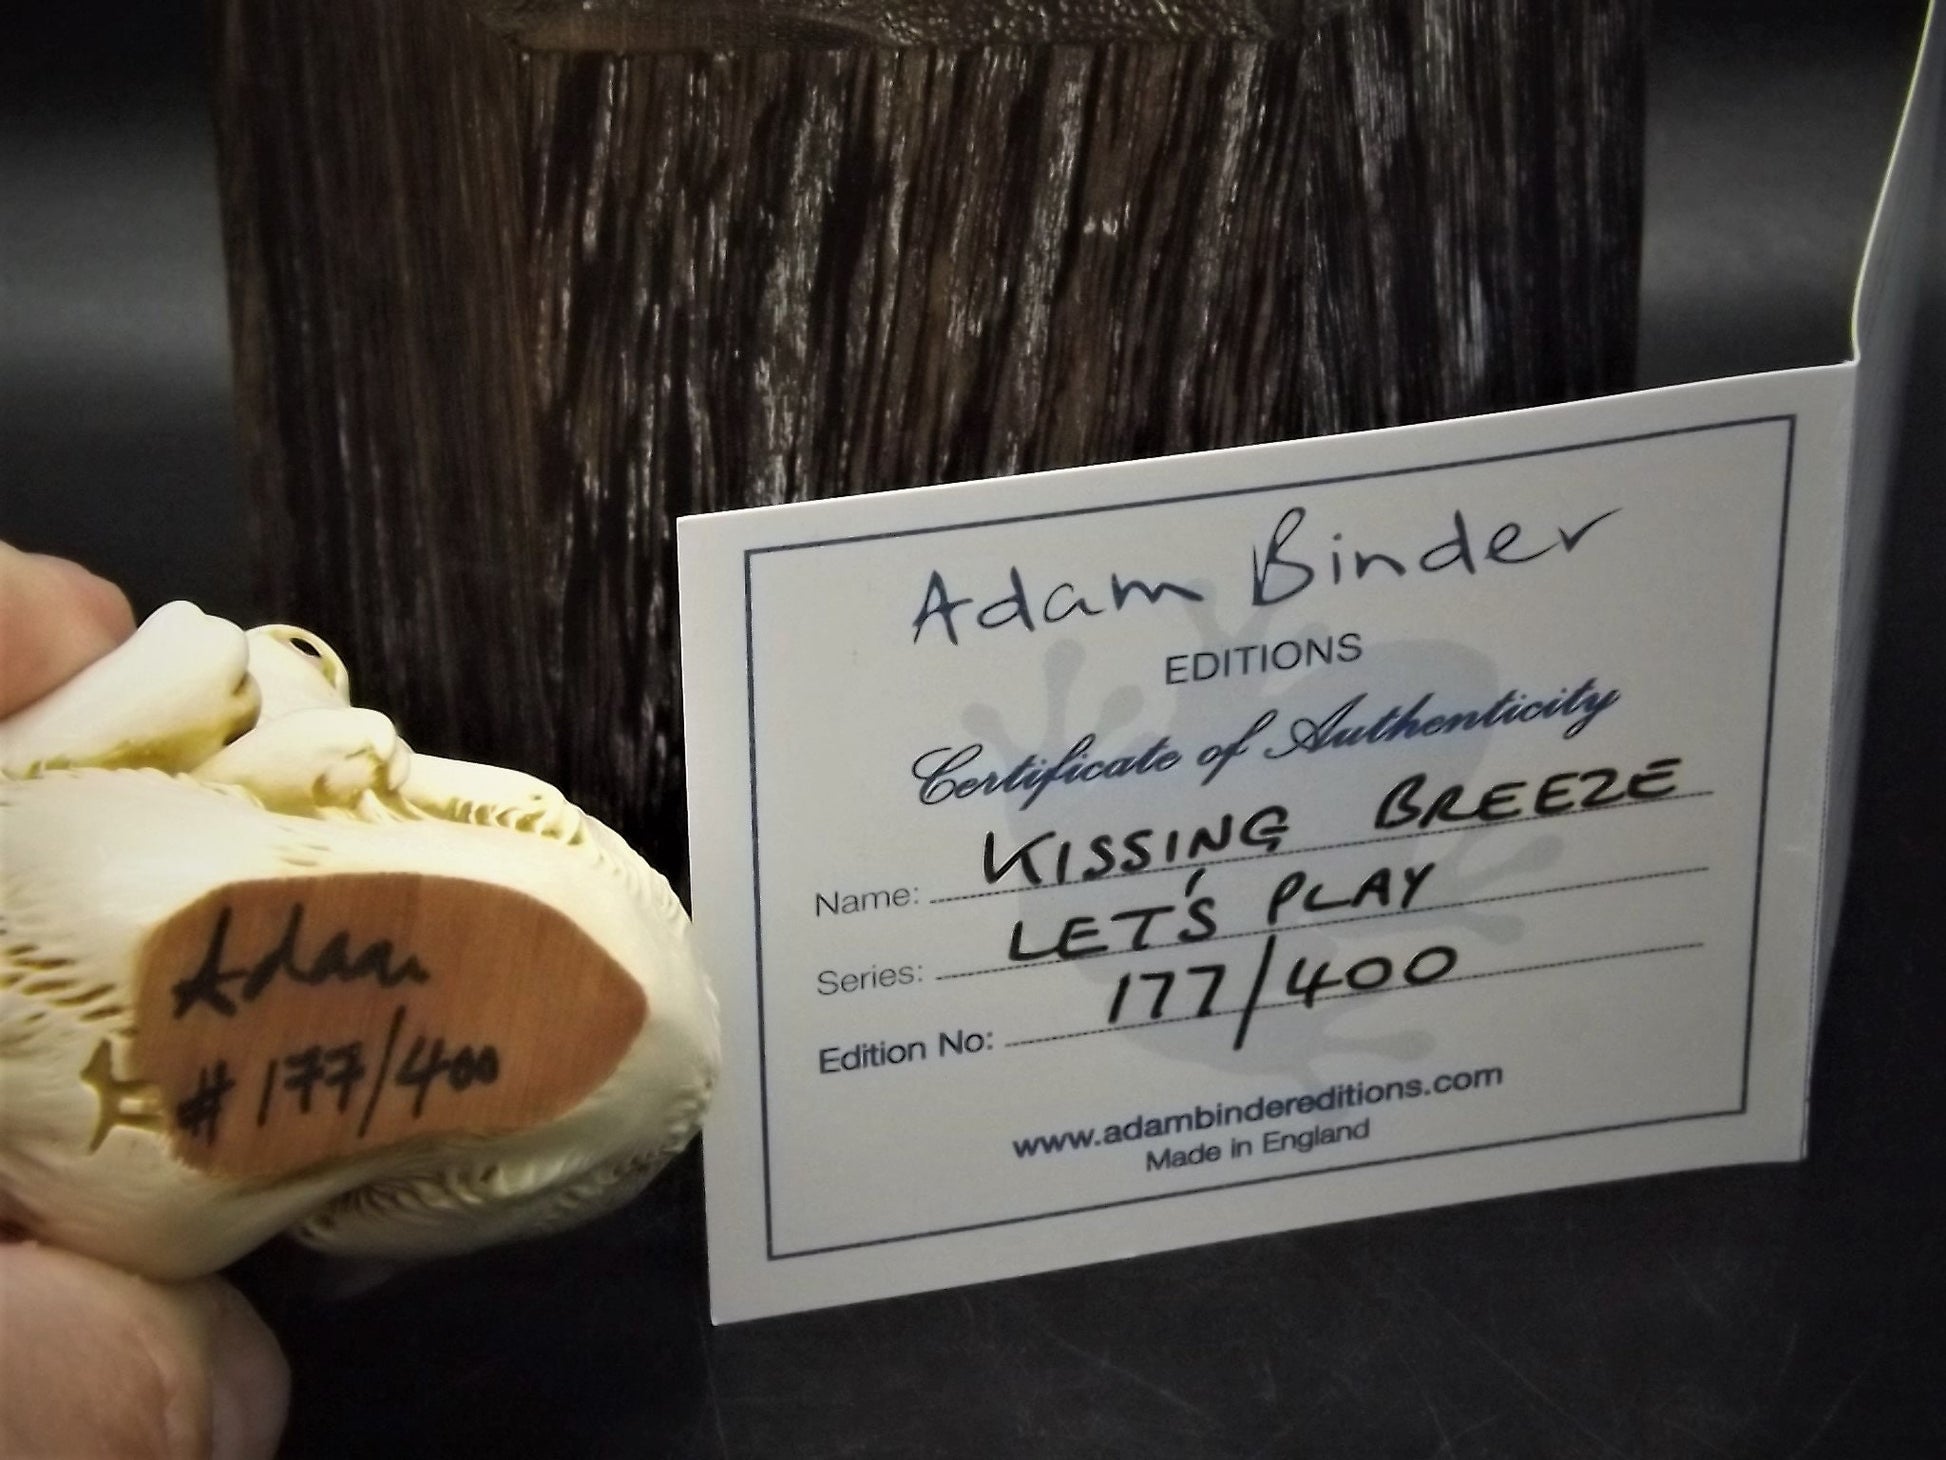 Adam Binder
EDITIONS
Certificate of Authenticity
Name: KISSING BREEZE
Series: LET'S PLAY
Edition No: 177/400
www.adambindereditions.com
Made in England
Adam
# 177/400